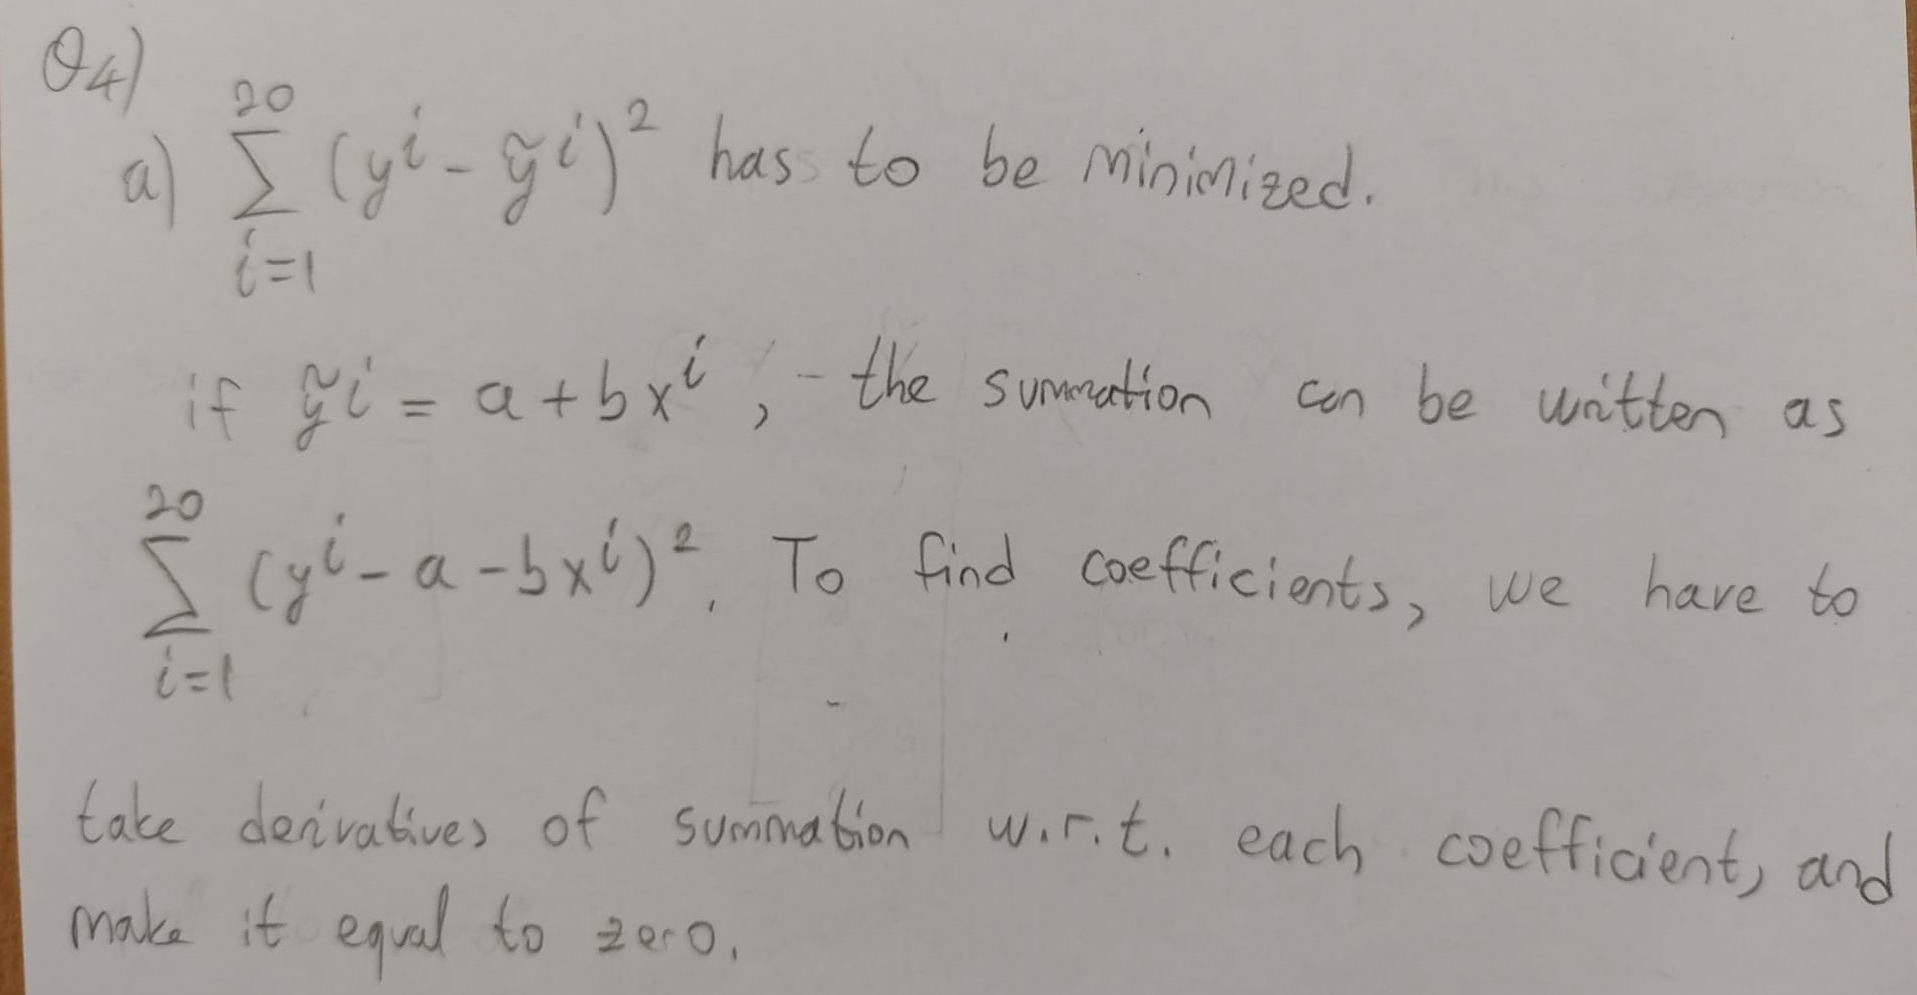 Q4)
a) $\sum_{i=1}^{20} (y^i - \tilde{y}^i)^2$ has to be minimized.
if $\tilde{y}^i = a + bx^i$, the summation can be written as
$\sum_{i=1}^{20} (y^i - a - bx^i)^2$. To find coefficients, we have to
take derivatives of summation w.r.t. each coefficient, and
make it equal to zero.